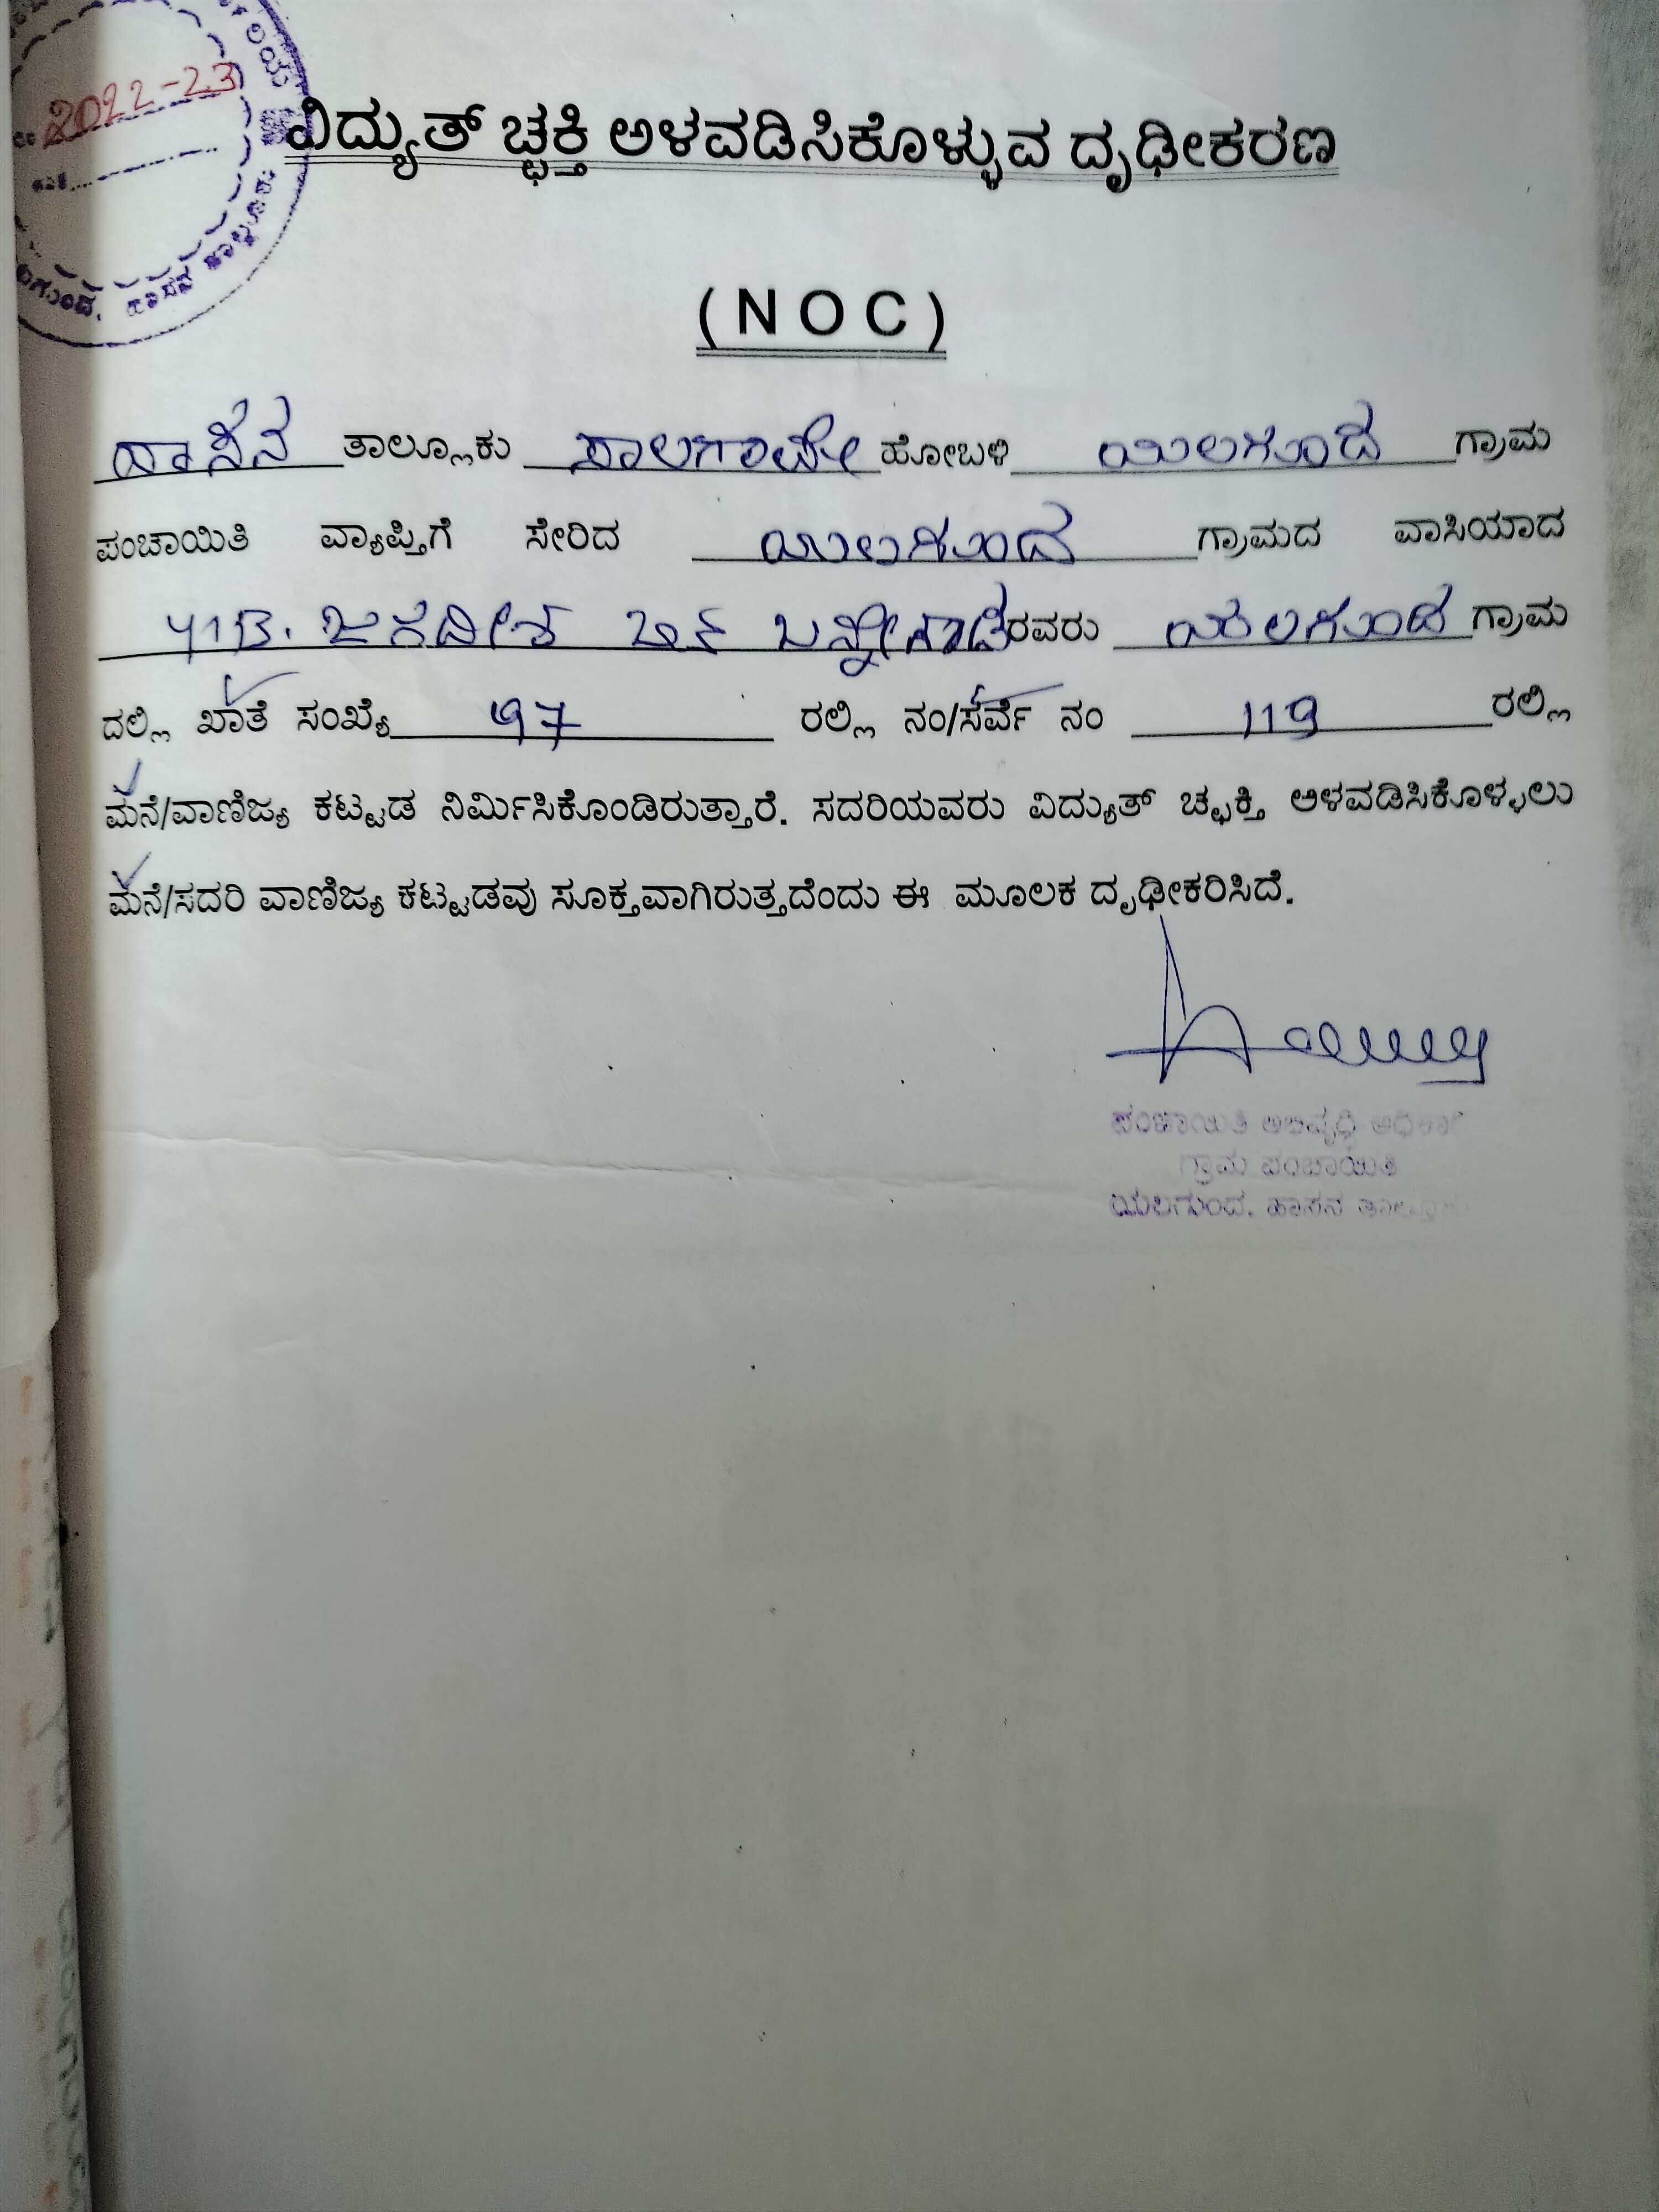 2022-23
ವಿದ್ಯುತ್ ಚ್ಛಕ್ತಿ ಅಳವಡಿಸಿಕೊಳ್ಳುವ ದೃಢೀಕರಣ
(NOC)
ಹಾಸನ ತಾಲ್ಲೂಕು ಸಾಲಗಾಮೇ ಹೋಬಳಿ ಯಲಗುಂದ ಗ್ರಾಮ
ಪಂಚಾಯಿತಿ ವ್ಯಾಪ್ತಿಗೆ ಸೇರಿದ ಯಲಗುಂದ ಗ್ರಾಮದ ವಾಸಿಯಾದ
Y1B. ಜಗದೀಶ ಬಿನ್ ರವರು ಯಲಗುಂದ ಗ್ರಾಮ
ದಲ್ಲಿ ಖಾತೆ ಸಂಖ್ಯೆ 97 ರಲ್ಲಿ ನಂ/ಸರ್ವೆ ನಂ 119 ರಲ್ಲಿ
ಮನೆ/ವಾಣಿಜ್ಯ ಕಟ್ಟಡ ನಿರ್ಮಿಸಿಕೊಂಡಿರುತ್ತಾರೆ. ಸದರಿಯವರು ವಿದ್ಯುತ್ ಚ್ಛಕ್ತಿ ಅಳವಡಿಸಿಕೊಳ್ಳಲು
ಮನೆ/ಸದರಿ ವಾಣಿಜ್ಯ ಕಟ್ಟಡವು ಸೂಕ್ತವಾಗಿರುತ್ತದೆಂದು ಈ ಮೂಲಕ ದೃಢೀಕರಿಸಿದೆ.
ಪಂಚಾಯಿತಿ ಅಭಿವೃದ್ಧಿ
ಗ್ರಾಮ ಪಂಚಾಯಿತಿ
ಯಲಗುಂದ. ಹಾಸನ